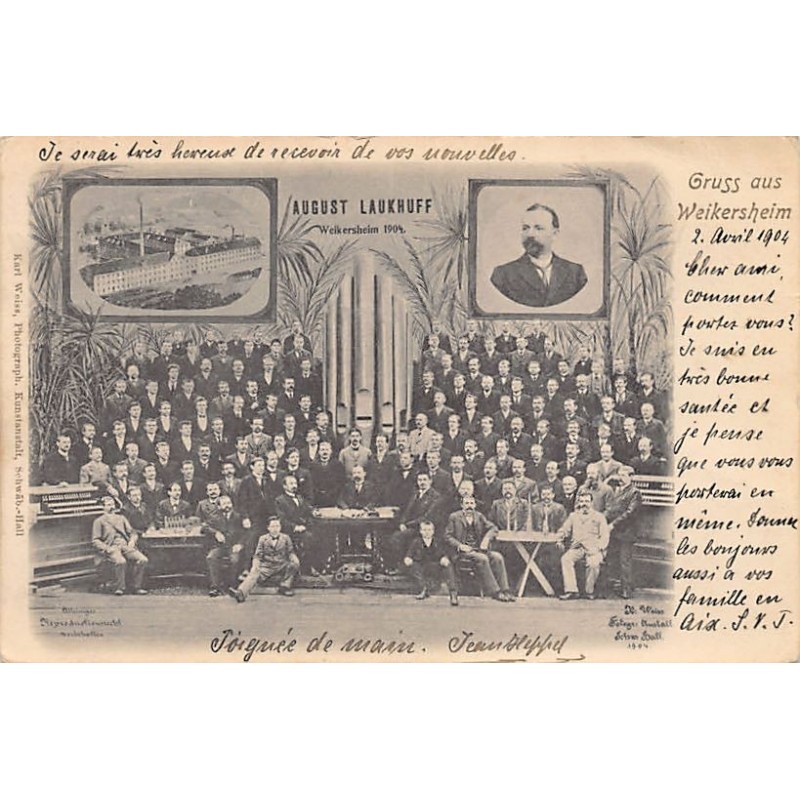 Je serai très hereuse de recevoir de vos nouvelles.
AUGUST LAUKHUFF
Weikersheim 1904.
Gruss aus
Weikersheim
2. Avril 1904
Cher ami,
comment
portez vous?
Je suis en
très bonne
santée et
je pense
que vous vous
porterai en
même. Donne
les bonjours
aussi a vos
famille en
Aix. S.V.T.
Poignée de main. Jean
Karl Weiss, Photograph. Kunstanstalt, Schwäb.-Hall
K. Weiss
Fotogr. Anstalt
Schw. Hall
1904